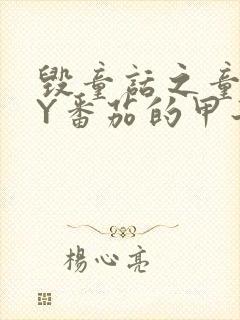 毁童话之童
Y番茄的甲
楊心亮